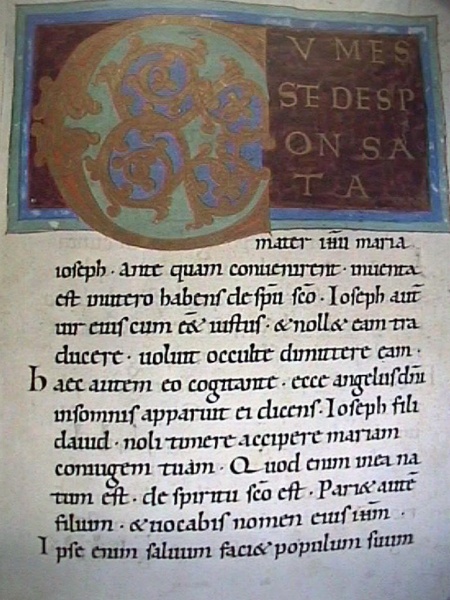 CVM ES
SE DESP
ON SA
T A
mater iħu maria
ioseph · Ante quam conuenirent · inuenta
est inutero habens de spū sēo · Ioseph autē
uir eius cum eē& iustus · & noll& eam tra
ducere · uoluit occulte dimittere eam ·
haec autem eo cogitante · ecce angelus dn̄i
insomnis apparuit ei dicens · Ioseph fili
dauid · noli timere accipere mariam
coniugem tuam · Quod enim inea na
tum est · de spiritu sēo est · Pari& autē
filium · & uocabis nomen eius iħm ·
Ipse enim saluum faci& populum suum